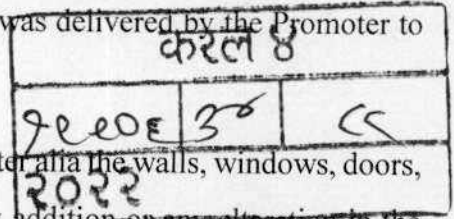 was delivered by the Promoter to
करल ४
१९९०६ ८८
alia the walls, windows, doors,
२०२२
addition or any alteration in the